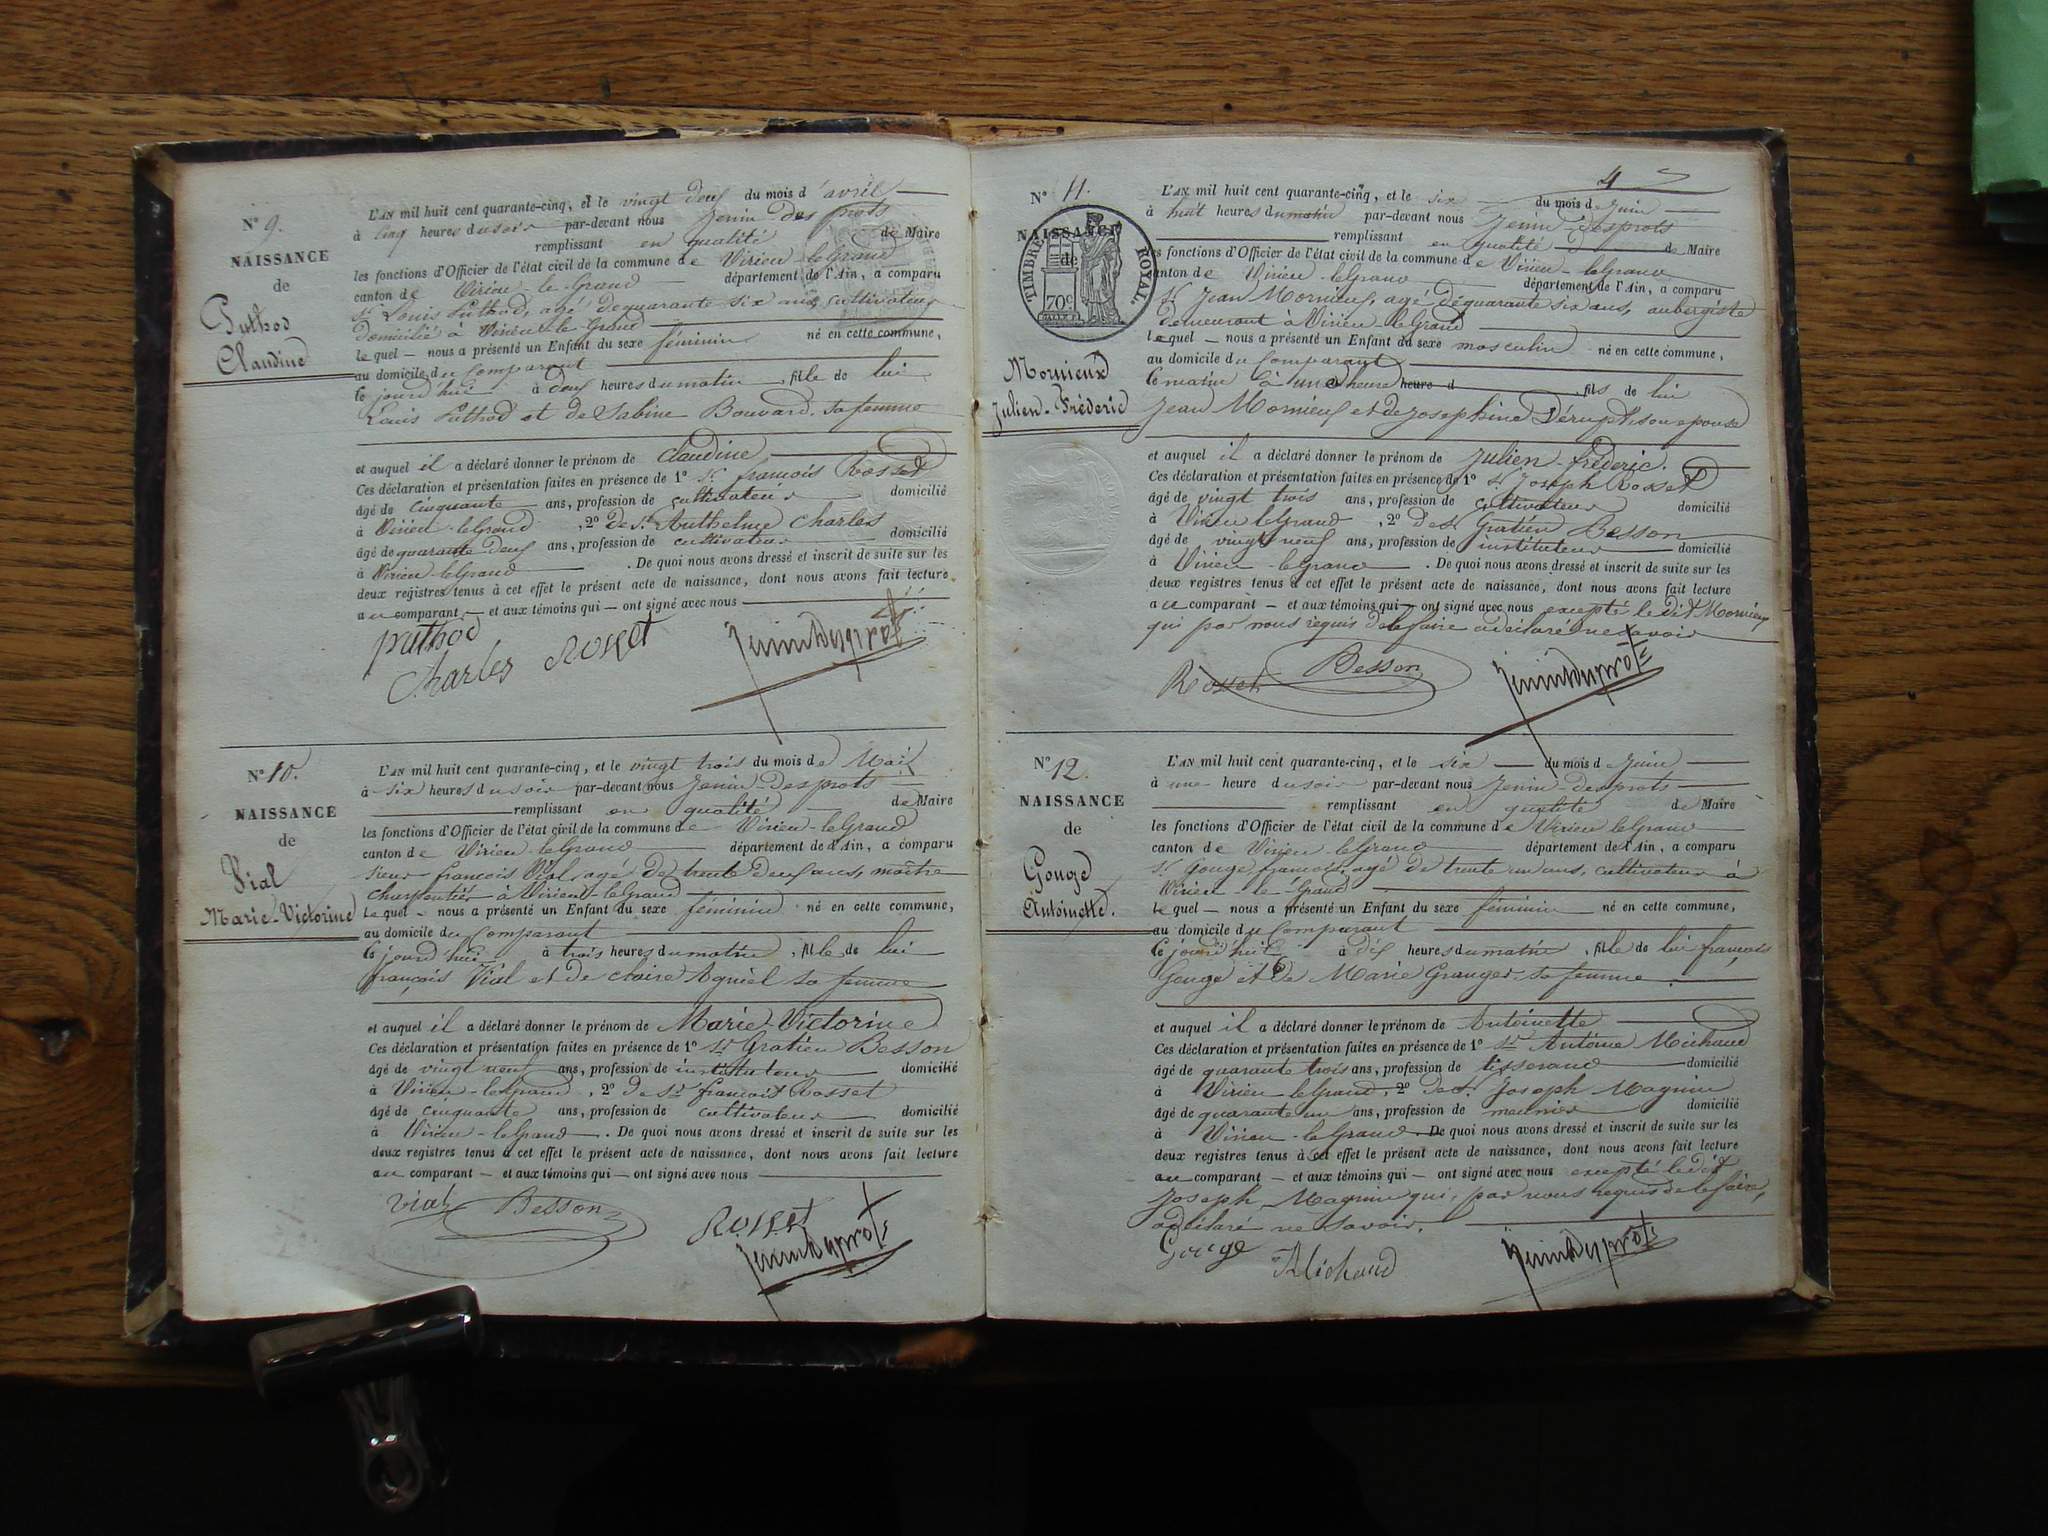 N° 9.
NAISSANCE
de
Puthod
Claudine
L'AN mil huit cent quarante-cinq, et le vingt deux du mois d'avril
à cinq heures du soir par-devant nous Jenin des prots
remplissant en qualité de Maire
les fonctions d'Officier de l'état civil de la commune de Virieu-le-Grand
canton de Virieu-le-Grand département de l'Ain, a comparu
Sr Louis Puthod, agé de quarante six ans, cultivateur
domicilié à Virieu-le-Grand
lequel nous a présenté un Enfant du sexe féminin né en cette commune,
au domicile du Comparant
ce jourd'hui à deux heures du matin, fille de lui
Louis Puthod et de Sabine Bouvard sa femme
et auquel il a déclaré donner le prénom de Claudine
Ces déclaration et présentation faites en présence de 1° Sr françois Rosset
âgé de cinquante ans, profession de cultivateur domicilié
à Virieu-le-Grand, 2° de Sr Anthelme Charles
âgé de quarante deux ans, profession de cultivateur domicilié
à Virieu-le-Grand. De quoi nous avons dressé et inscrit de suite sur les
deux registres tenus à cet effet le présent acte de naissance, dont nous avons fait lecture
au comparant et aux témoins qui ont signé avec nous
puthod
Charles Rosset Jenindesprots
N° 10.
NAISSANCE
de
Vial
Marie-Victorine
L'AN mil huit cent quarante-cinq, et le vingt trois du mois de Mai
à six heures du soir par-devant nous Jenin-Desprots
remplissant en qualité de Maire
les fonctions d'Officier de l'état civil de la commune de Virieu-le-Grand
canton de Virieu-le-Grand département de l'Ain, a comparu
Sieur françois Vial, agé de trente deux ans, maître
charpentier à Virieu-le-Grand
lequel nous a présenté un Enfant du sexe féminin né en cette commune,
au domicile du Comparant
ce jourd'hui à trois heures du matin, fille de lui
françois Vial et de Claire Agniel sa femme
et auquel il a déclaré donner le prénom de Marie-Victorine
Ces déclaration et présentation faites en présence de 1° Sr Gratien Besson
âgé de vingt neuf ans, profession de instituteur domicilié
à Virieu-le-Grand, 2° de Sr françois Rosset
âgé de cinquante ans, profession de cultivateur domicilié
à Virieu-le-Grand. De quoi nous avons dressé et inscrit de suite sur les
deux registres tenus à cet effet le présent acte de naissance, dont nous avons fait lecture
au comparant et aux témoins qui ont signé avec nous
Vial Besson Rosset
Jenindesprots
4
N° 11.
NAISSANCE
de
TIMBRE ROYAL
70c
Mornieux
Julien-Fréderic
L'AN mil huit cent quarante-cinq, et le six du mois de Juin
à huit heures du matin par-devant nous Jenin-Desprots
remplissant en qualité de Maire
les fonctions d'Officier de l'état civil de la commune de Virieu-le-Grand
canton de Virieu-leGrand département de l'Ain, a comparu
Sr Jean Mornieux, agé de quarante six ans, aubergiste
demeurant à Virieu-le-Grand
lequel nous a présenté un Enfant du sexe masculin né en cette commune,
au domicile du Comparant
ce matin à une heure heure d, fils de lui
Jean Mornieux et de Josephine Déruph son epouse
et auquel il a déclaré donner le prénom de Julien-fréderic.
Ces déclaration et présentation faites en présence de 1° Sr Joseph Rosset
âgé de vingt trois ans, profession de cultivateur domicilié
à Virieu leGrand, 2° de Sr Gratien Besson
âgé de vingt neuf ans, profession de instituteur domicilié
à Virieu-leGrand. De quoi nous avons dressé et inscrit de suite sur les
deux registres tenus à cet effet le présent acte de naissance, dont nous avons fait lecture
au comparant et aux témoins qui ont signé avec nous excepté le dit Mornieux
qui par nous requis de le faire a déclaré ne savoir
Rosset Besson Jenindesprots
N° 12.
NAISSANCE
de
Gouge
Antoinette.
L'AN mil huit cent quarante-cinq, et le six du mois de Juin
à une heure du soir par-devant nous Jenin-Desprots
remplissant en qualité de Maire
les fonctions d'Officier de l'état civil de la commune de Virieu leGrand
canton de Virieu-leGrand département de l'Ain, a comparu
Sr Gouge françois, agé de trente un ans, cultivateur à
Virieu-le-Grand
lequel nous a présenté un Enfant du sexe féminin né en cette commune,
au domicile du Comparant
ce jourd'hui à dix heures du matin, fille de lui françois
Gouge et de Marie Granger sa femme.
et auquel il a déclaré donner le prénom de Antoinette
Ces déclaration et présentation faites en présence de 1° Sr Antoine Michaud
âgé de quarante trois ans, profession de tisserand domicilié
à Virieu leGrand, 2° de Sr Joseph Magnin
âgé de quarante un ans, profession de meunier domicilié
à Virieu-leGrand. De quoi nous avons dressé et inscrit de suite sur les
deux registres tenus à cet effet le présent acte de naissance, dont nous avons fait lecture
au comparant et aux témoins qui ont signé avec nous excepté le dit
Joseph Magnin qui, par nous requis de le faire,
a déclaré ne savoir.
Gouge Michaud Jenindesprots